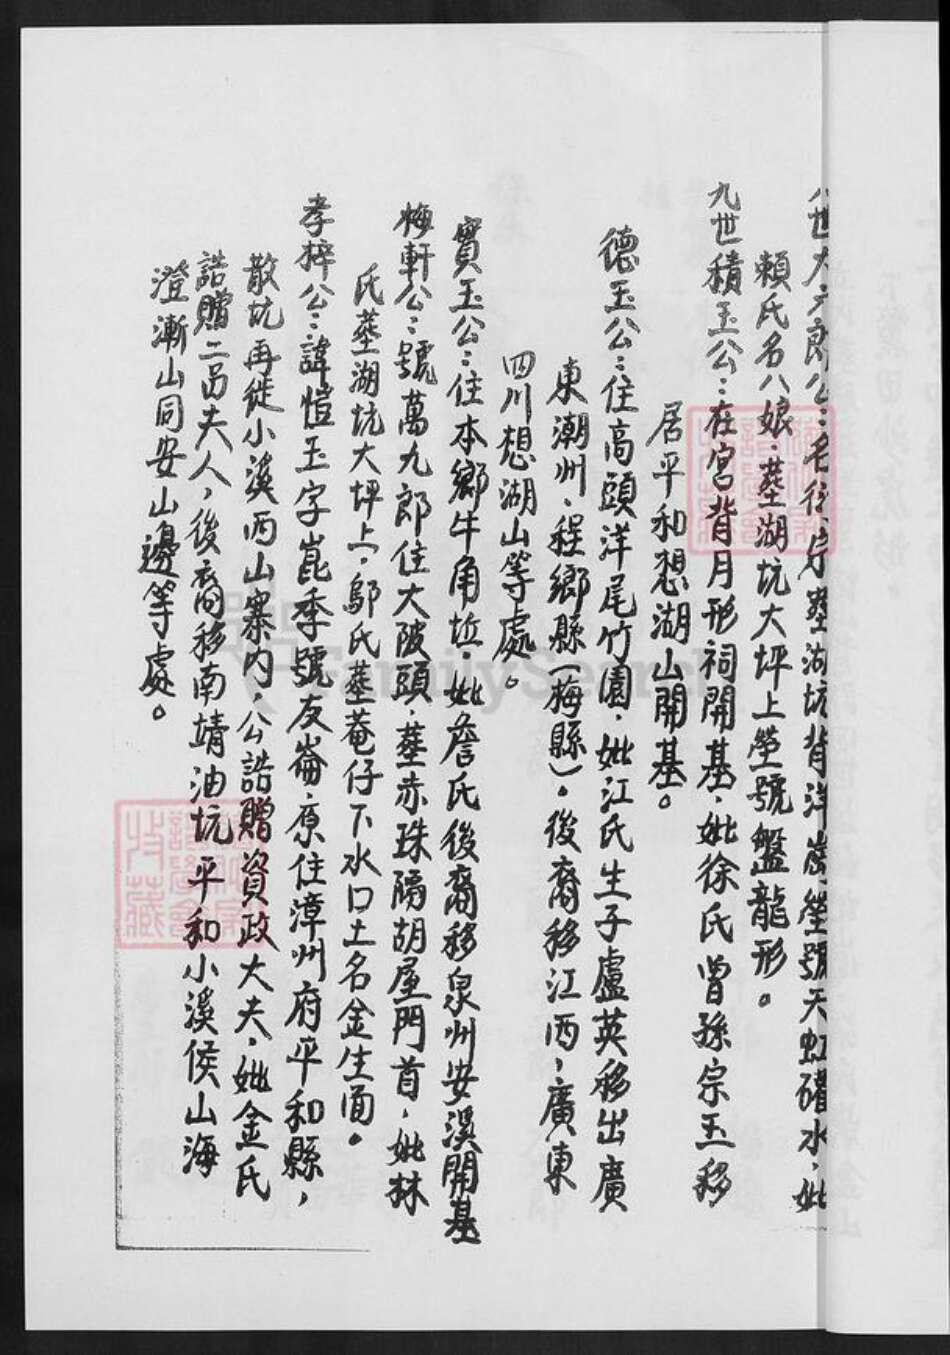 八世大六郎公：壟湖坑背洋崗塋號天虹礶水，妣
賴氏名八娘：塟湖坑大坪上塋號盤龍形。
九世積玉公：在宮背月形祠開基，妣徐氏曾孫宗玉移
居平和想湖山開基。
德玉公：住高頭洋尾竹園，妣江氏生子盧英移出廣
東潮州，程鄉縣（梅縣）。後裔移江西，廣東
四川想湖山等處。
寶玉公：住本鄉牛角坵，妣詹氏後裔移泉州安溪開基
梅軒公：號萬九郎住大陂頭，塟赤珠隔胡屋門首，妣林
氏塟湖坑大坪上，鄔氏塟菴仔下水口土名金生面。
孝梓公：諱愷玉字崑季號友崙，原住漳州府平和縣，
散坑再徙小溪西山寨內，公誥贈資政大夫，妣金氏
誥贈二品夫人，後裔移南靖油坑平和小溪侯山海
澄漸山同安山邊等處。
FamilySearch